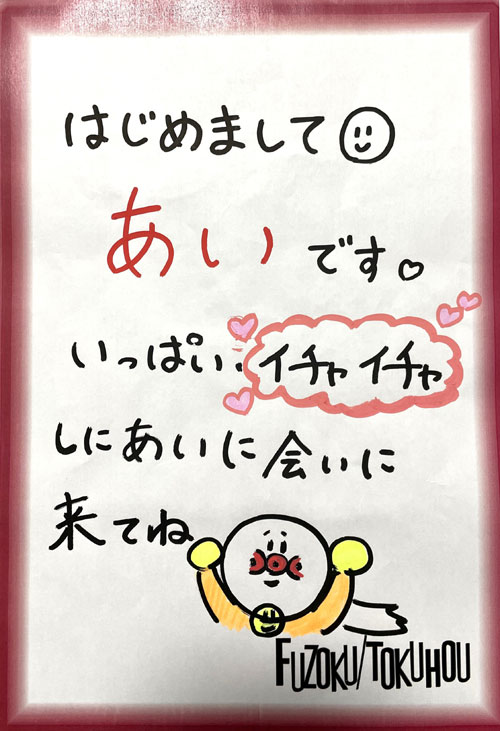 はじめまして
あいです♡
いっぱいイチャイチャ
しにあいに会いに
来てね
FUZOKU/TOKUHOU